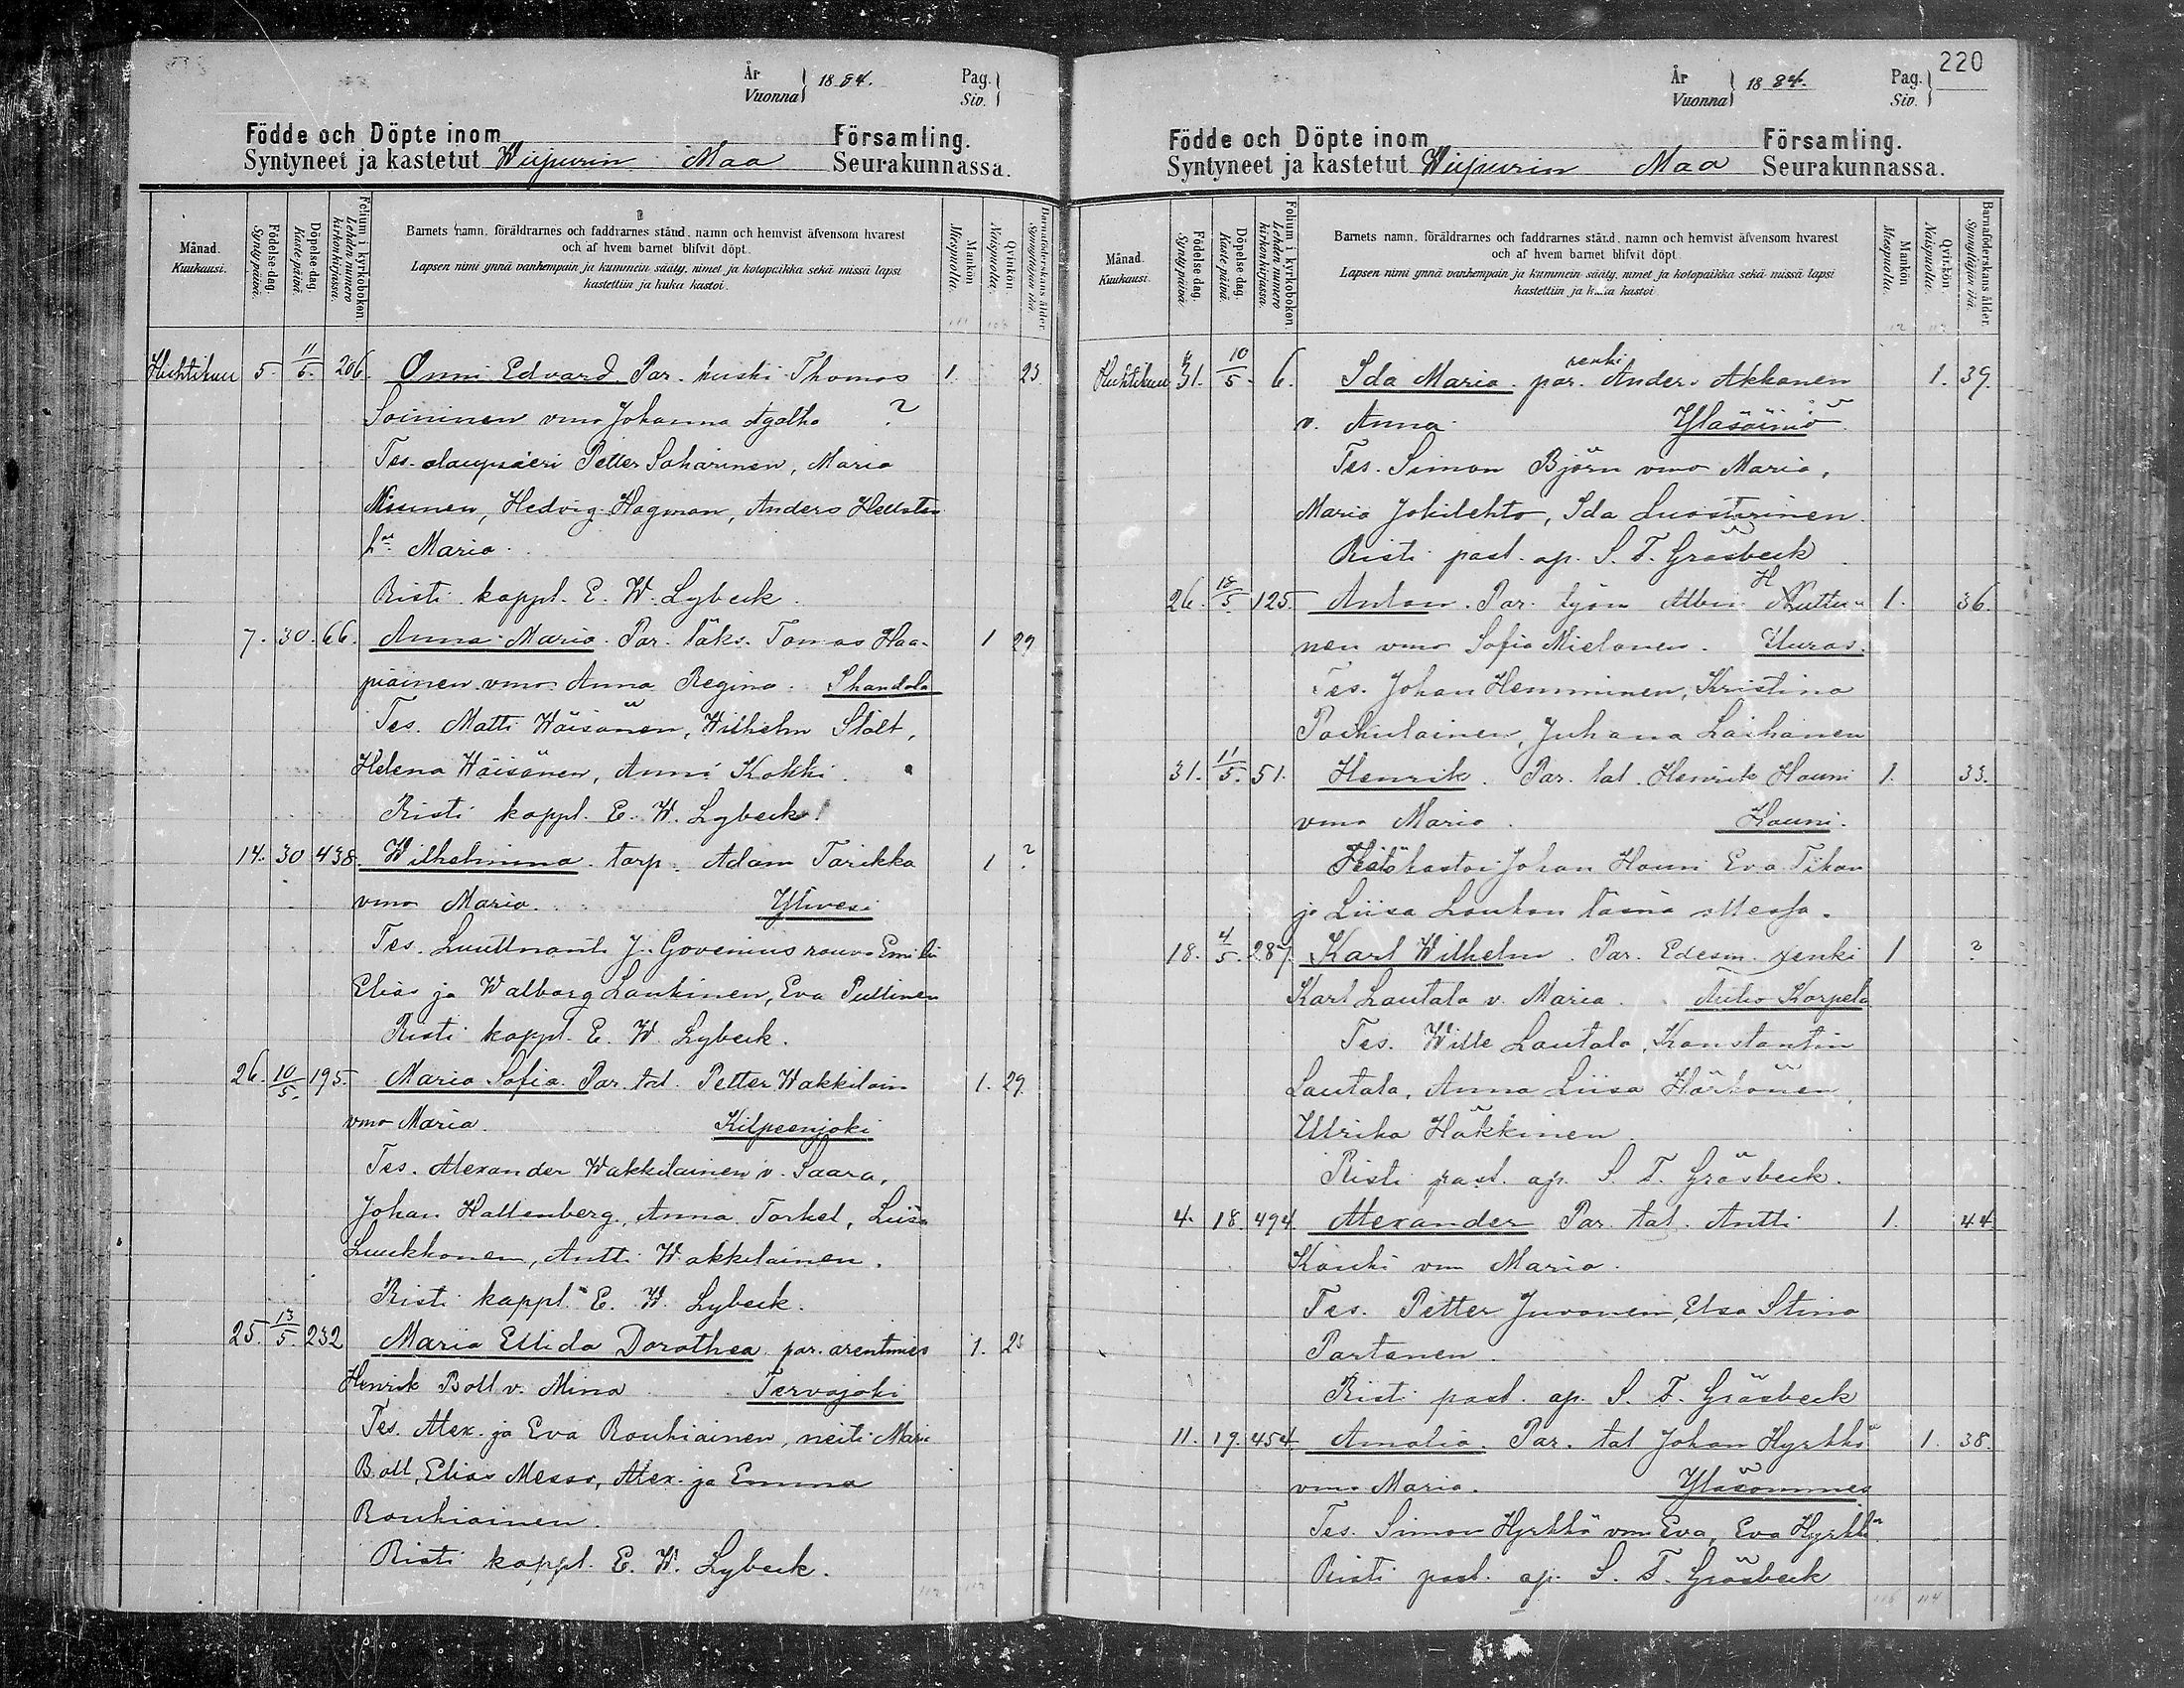 År
Vuonna
1884.
Pag.
Siv.
Födde och Döpte inom Församling.
Syntyneet ja kastetut Wiipurin Maa Seurakunnassa.
Månad.
Kuukausi.
Födelse-dag.
Synty-päivä.
Döpelse-dag.
Kaste-päivä.
Folium i kyrkoboken.
Lehden numero kirkonkirjassa.
Barnets namn, föräldrarnes och faddrarnes stånd, namn och hemvist äfvensom hvarest
och af hvem barnet blifvit döpt.
Lapsen nimi ynnä vanhempain ja kummein sääty, nimet ja kotopaikka sekä missä lapsi
kastettiin ja kuka kastoi.
Mankön
Miespuolia.
Qvinkön
Naispuolia.
Barnaföderskans ålder.
Synnyttäjän ikä.
Huhtikuu 5. 11/5. 206. Onni Edvard. Par. kuski Thomas 1. 23.
Soininen vmo Johanna Agatha ?
Tes. alaupseeri Petter Saharinen, Maria
Hedvig Hagman, Anders Hellsten
Maria.
Risti kappl. E. W. Lybeck.
7. 30. 66. Anna Maria. Par. läks. Tomas Haa- 1 29
piainen vmo Anna Regina.
Tes. Matti Wäisänen, Wilhelm Stolt,
Helena Wäisänen, Anni Kokki.
Risti kappl. E. W. Lybeck.
14. 30 438. Wilhelmina. torp. Adam Tarikka 1 ?
vmo Maria. Ylivesi
Tes. Luuttnanti J. Govenius rouva Emili
Elias ja Walborg Laukinen, Eva Pullinen
Risti kappl. E. W. Lybeck.
26. 10/5. 195. Maria Sofia. Par. tal. Petter Wakkilain 1. 29.
vmo Maria Kilpeenjoki
Tes. Alexander Wakkilainen v. Saara,
Johan Hallenberg, Anna Torkel, Liisa
Luukkonen, Antti Wakkilainen.
Risti kappl. E. W. Lybeck.
25. 13/5. 232 Maria Ellida Dorothea par. arentmies 1. 23
Henrik Boll v. Mina Tervajoki
Tes. Alex. ja Eva Rouhiainen, neiti Mari
Boll, Elias Messo, Alex. ja Emma
Rouhiainen.
Risti kappl. E. W. Lybeck.
220
År
Vuonna
1884.
Pag.
Siv.
Födde och Döpte inom Församling.
Syntyneet ja kastetut Wiipurin Maa Seurakunnassa.
Månad.
Kuukausi.
Födelse dag.
Synty päivä.
Döpelse dag.
Kaste päivä.
Folium i kyrkoboken.
Lehden numero kirkonkirjassa.
Barnets namn, föräldrarnes och faddrarnes stånd, namn och hemvist äfvensom hvarest
och af hvem barnet blifvit döpt.
Lapsen nimi ynnä vanhempain ja kummein sääty, nimet ja kotopaikka sekä missä lapsi
kastettiin ja kuka kastoi
Mankön
Miespuolia.
Qvinkön.
Naispuolia.
Barnaföderskans ålder.
Synnyttäjän ikä.
renki
Huhtikuu 31. 10/5. 6. Ida Maria. par. Anders Akkanen 1. 39.
v. Anna. Yläsäiniö
Tes. Simon Björn vmo Maria,
Maria Jokilehto, Ida Luostarinen.
Risti past. ap. S. F. Gräsbeck
26. 18/5. 125. Anton. Par. työm 1. 36.
nen vmo Sofia Mielonen. Uuras.
Tes. Johan Hemminen, Kristina
Paihulainen, Juhana Laihanen
31. 11/5. 51. Henrik. Par. tal. Henrik Houni 1. 33.
vmo Maria. Houni.
Hätäkastoi Johan Houni Eva Tihan
ja Liisa Loukon läsnä ollessa.
18. 4/5. 287. Karl Wilhelm. Par. Edesm. renki 1 ?
Karl Lautala v. Maria. Autio Karpela
Tes. Wille Lautala, Konstantin
Lautala, Anna Liisa Härkönen,
Ulrika Häkkinen
Risti past. ap. S. F. Gräsbeck.
4. 18. 494 Alexander Par. tal. Antti 1. 44
Kouki vm Maria.
Tes. Petter Juvonen, Elsa Stina
Partanen.
Risti past. ap. S. F. Gräsbeck
11. 19. 454 Amalia. Par. tal Johan Hyrkkö 1. 38.
vmo Maria. Yläsommee
Tes. Simon Hyrkkö vm Eva, Eva Hyrkkö.
Risti past. ap. S. F. Gräsbeck